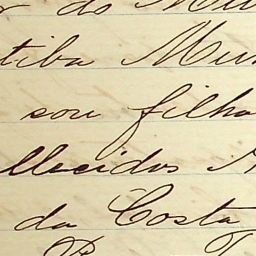 r do Mu
tiba Mun
sou filho
llecidos
da Costa